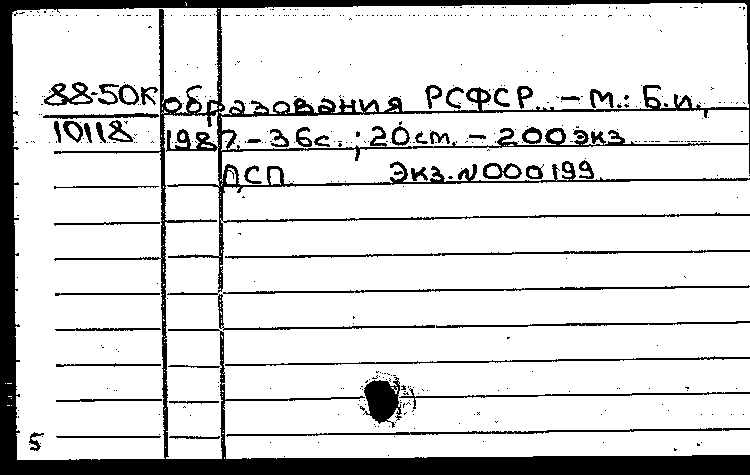 88-50К образования РСФСР. - М.: Б.и.,
10118 1987. - 36с. ; 20см. - 200экз.
ДСП Экз. N000199
5